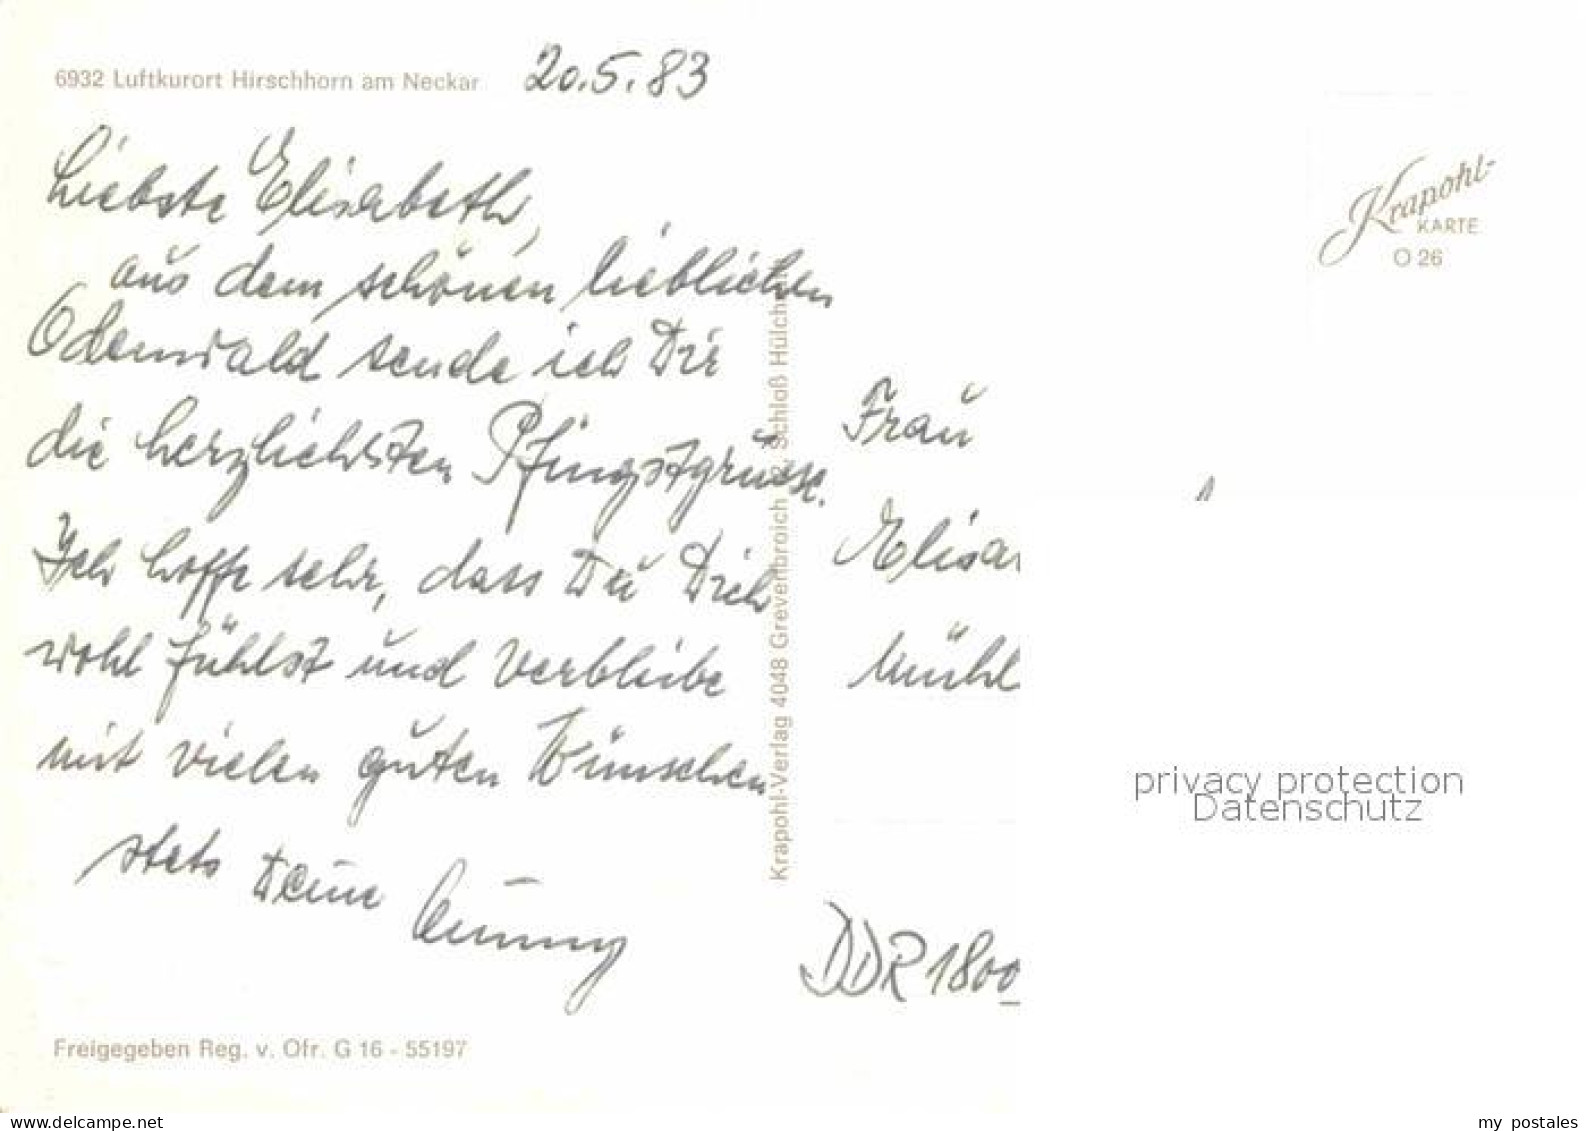 6932 Luftkurort Hirschhorn am Neckar
20.5.83
Liebste Elisabeth,
aus dem schönen lieblichen
Odenwald sende ich Dir
die herzlichsten Pfingstgrüsse.
Ich hoffe sehr, dass Du Dich
wohl fühlst und verbleibe
mit vielen guten Wünschen
stets Deine
Freigegeben Reg. v. Ofr. G 16 - 55197
Krapohl-Verlag 4048 Grevenbroich Schloß Hülch
Krapohl-
KARTE
O 26
Frau
Elisa
Mühl
DDR 1800
privacy protection
Datenschutz
www.delcampe.net
my postales